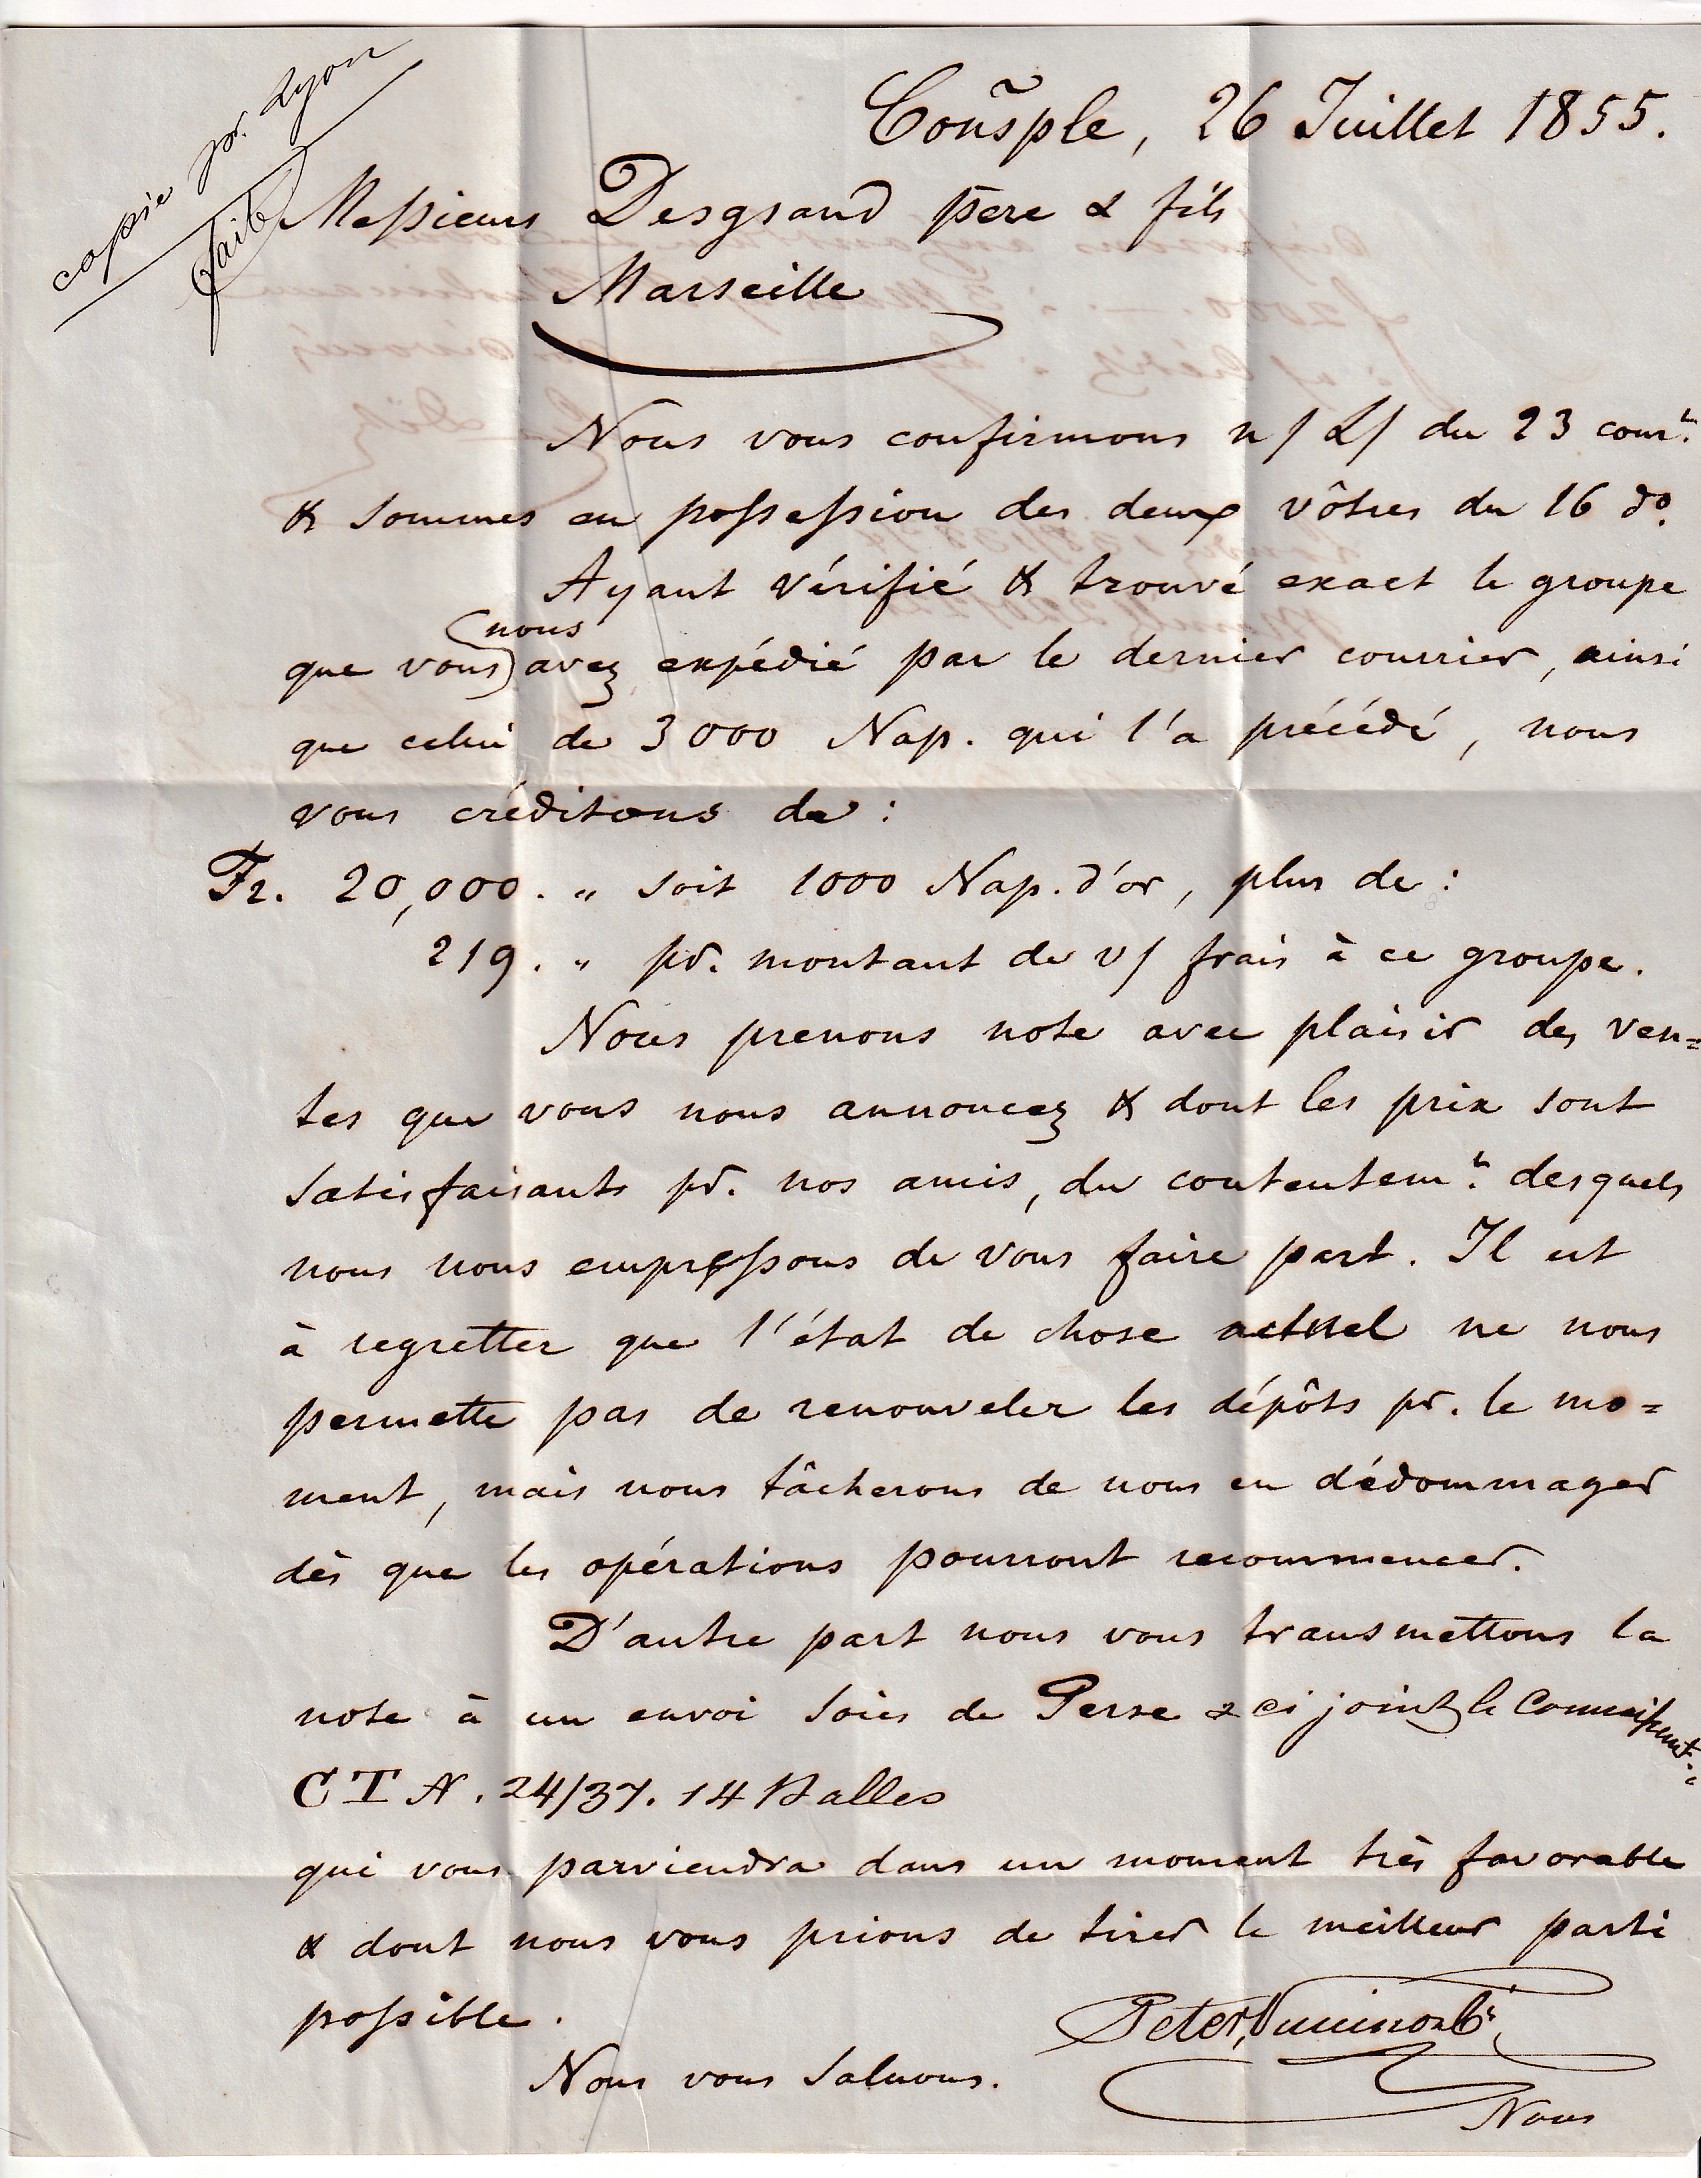 copie pr. Lyon
faite
Consple, 26 Juillet 1855.
Messieurs Desgrand père & fils
Marseille
Nous vous confirmons n/ L/ du 23 court.
& sommes en possession des deux vôtres du 16 do.
Ayant vérifié & trouvé exact le groupe
nous
que vous avez expédié par le dernier courrier, ainsi
que celui de 3000 Nap. qui l'a précédé, nous
vous créditons de :
Fr. 20,000. " soit 1000 Nap. d'or, plus de :
219. " pr. montant de v/ frais à ce groupe.
Nous prenons note avec plaisir des ven=
tes que vous nous annoncez & dont les prix sont
satisfaisants pr. nos amis, du contentemt. desquels
nous nous empressons de vous faire part. Il est
à regretter que l'état de chose actuel ne nous
permette pas de renouveler les dépôts pr. le mo=
ment, mais nous tâcherons de nous en dédommager
dès que les opérations pourront recommencer.
D'autre part nous vous transmettons la
note à un envoi soies de Perse & ci joint le Connaissment.:
C T N. 24/37. 14 Balles
qui vous parviendra dans un moment très favorable
& dont nous vous prions de tirer le meilleur parti
possible.
Nous vous saluons.
Peter
Nous